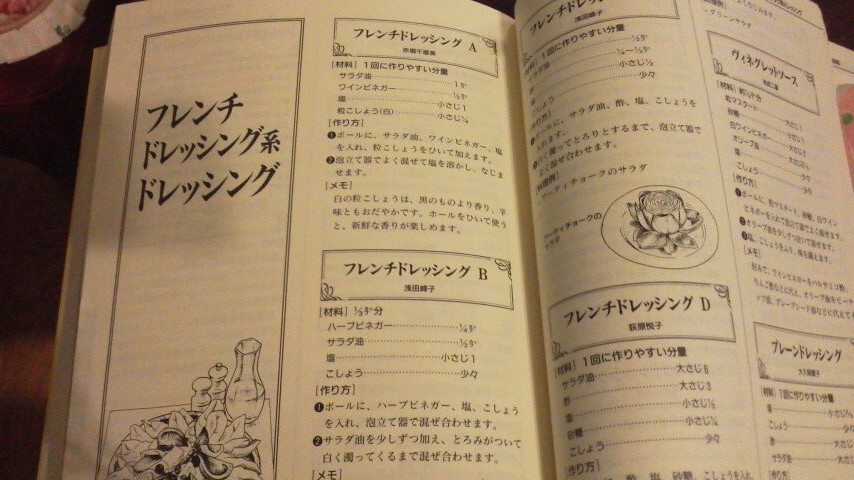 フレンチ
ドレッシング系
ドレッシング
フレンチドレッシング A
赤堀千恵美
[材料] 1回に作りやすい分量
サラダ油
ワインビネガー
塩 小さじ1
粒こしょう(白) 小さじ¼
[作り方]
❶ボールに、サラダ油、ワインビネガー、塩
を入れ、粒こしょうをひいて加えます。
❷泡立て器でよく混ぜて塩を溶かし、なじま
せます。
[メモ]
白の粒こしょうは、黒のものより香り、辛
味ともおだやかです。ホールをひいて使う
と、新鮮な香りが楽しめます。
フレンチドレッシング B
浅田峰子
[材料] ½カップ分
ハーブビネガー ¼カップ
サラダ油 ½カップ
塩 小さじ1
こしょう 少々
[作り方]
❶ボールに、ハーブビネガー、塩、こしょう
を入れ、泡立て器で混ぜ合わせます。
❷サラダ油を少しずつ加え、とろみがついて
白く濁ってくるまで混ぜ合わせます。
[メモ]
フレンチドレッ
浅田峰子
[材料] 1回に作りやすい分量
サラダ油
酢
塩 小さじ½
こしょう 少々
[作り方]
ボールに、サラダ油、酢、塩、こしょうを
入れます。
白く濁ってとろりとするまで、泡立て器で
よく混ぜ合わせます。
アーティチョークのサラダ
アーティチョークの
サラダ
フレンチドレッシング D
荻原悦子
[材料] 1回に作りやすい分量
サラダ油 大さじ6
酢 大さじ3
塩 小さじ½
砂糖 小さじ½
こしょう 少々
[作り方]
酢、塩、砂糖、こしょうを入れ、
グリーンサラダ
ヴィネグレットソース
粒マスタード 大さじ
砂糖 小さじ
白ワインビネガー
オリーブ油
塩
こしょう 少々
[作り方]
❶ボールに、粒マスタード、砂糖、白ワイン
ビネガーを入れて泡立て器でよく混ぜます。
❷オリーブ油を少しずつ注いで混ぜます。
❸塩、こしょうをふり、味を調えます。
[メモ]
プレーンドレッシング
[材料] 1回に作りやすい分量
酢
塩 小さじ
こしょう 少々
サラダ油 大さじ
[作り方]